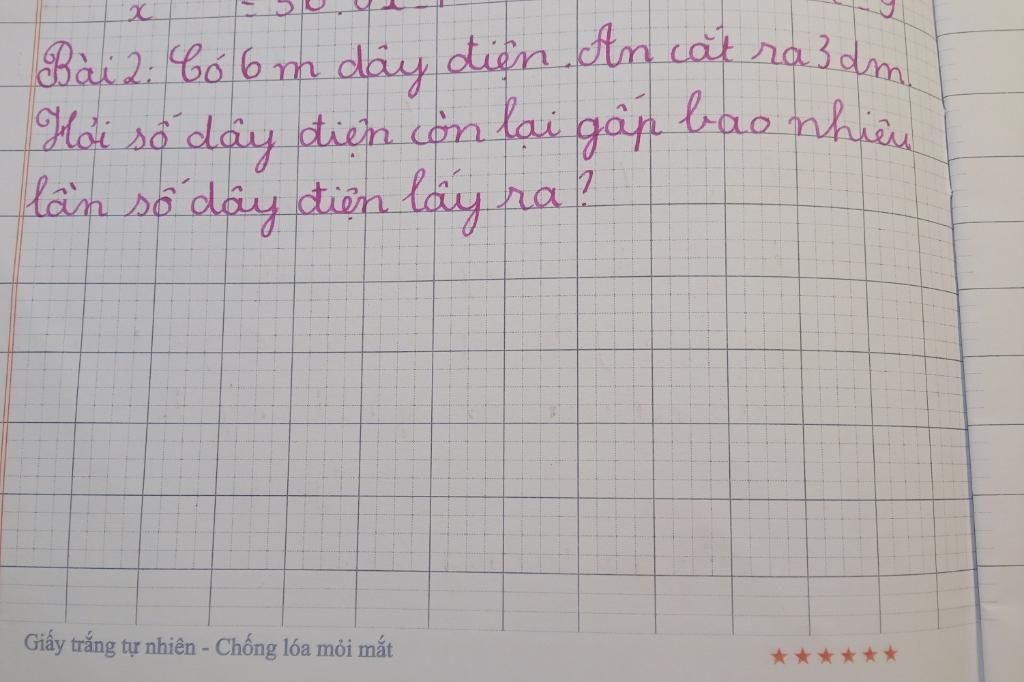 x = 30
Bài 2: Có 6 m dây điện. An cắt ra 3 dm.
Hỏi số dây điện còn lại gấp bao nhiêu
lần số dây điện lấy ra?
Giấy trắng tự nhiên - Chống lóa mỏi mắt